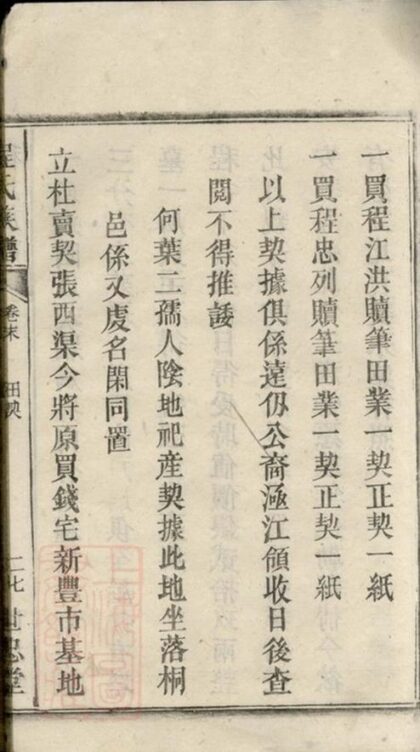 一買程江洪贖筆田業一契正契一紙
一買程忠列贖筆田業一契正契一紙
以上契據俱係遠仍公裔涵江領收日後查
閱不得推諉
何葉二孺人陰地祀產契據此地坐落桐
邑係又虔名閑同置
立杜賣契張西渠今將原買錢宅新豐市基地
程氏族譜
卷末
田
二七
世忠堂